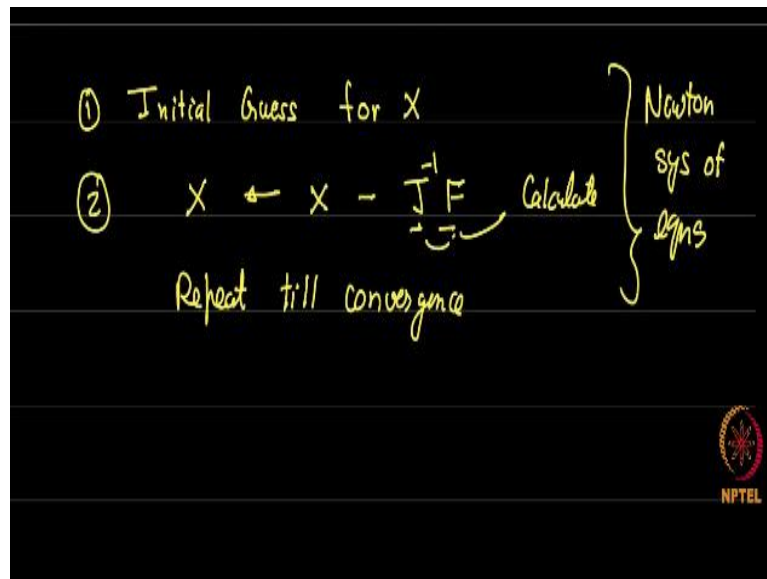 ① Initial Guess for X
② X ← X - J⁻¹ F Calculate
Repeat till convergence
Newton
sys of
eqns
NPTEL